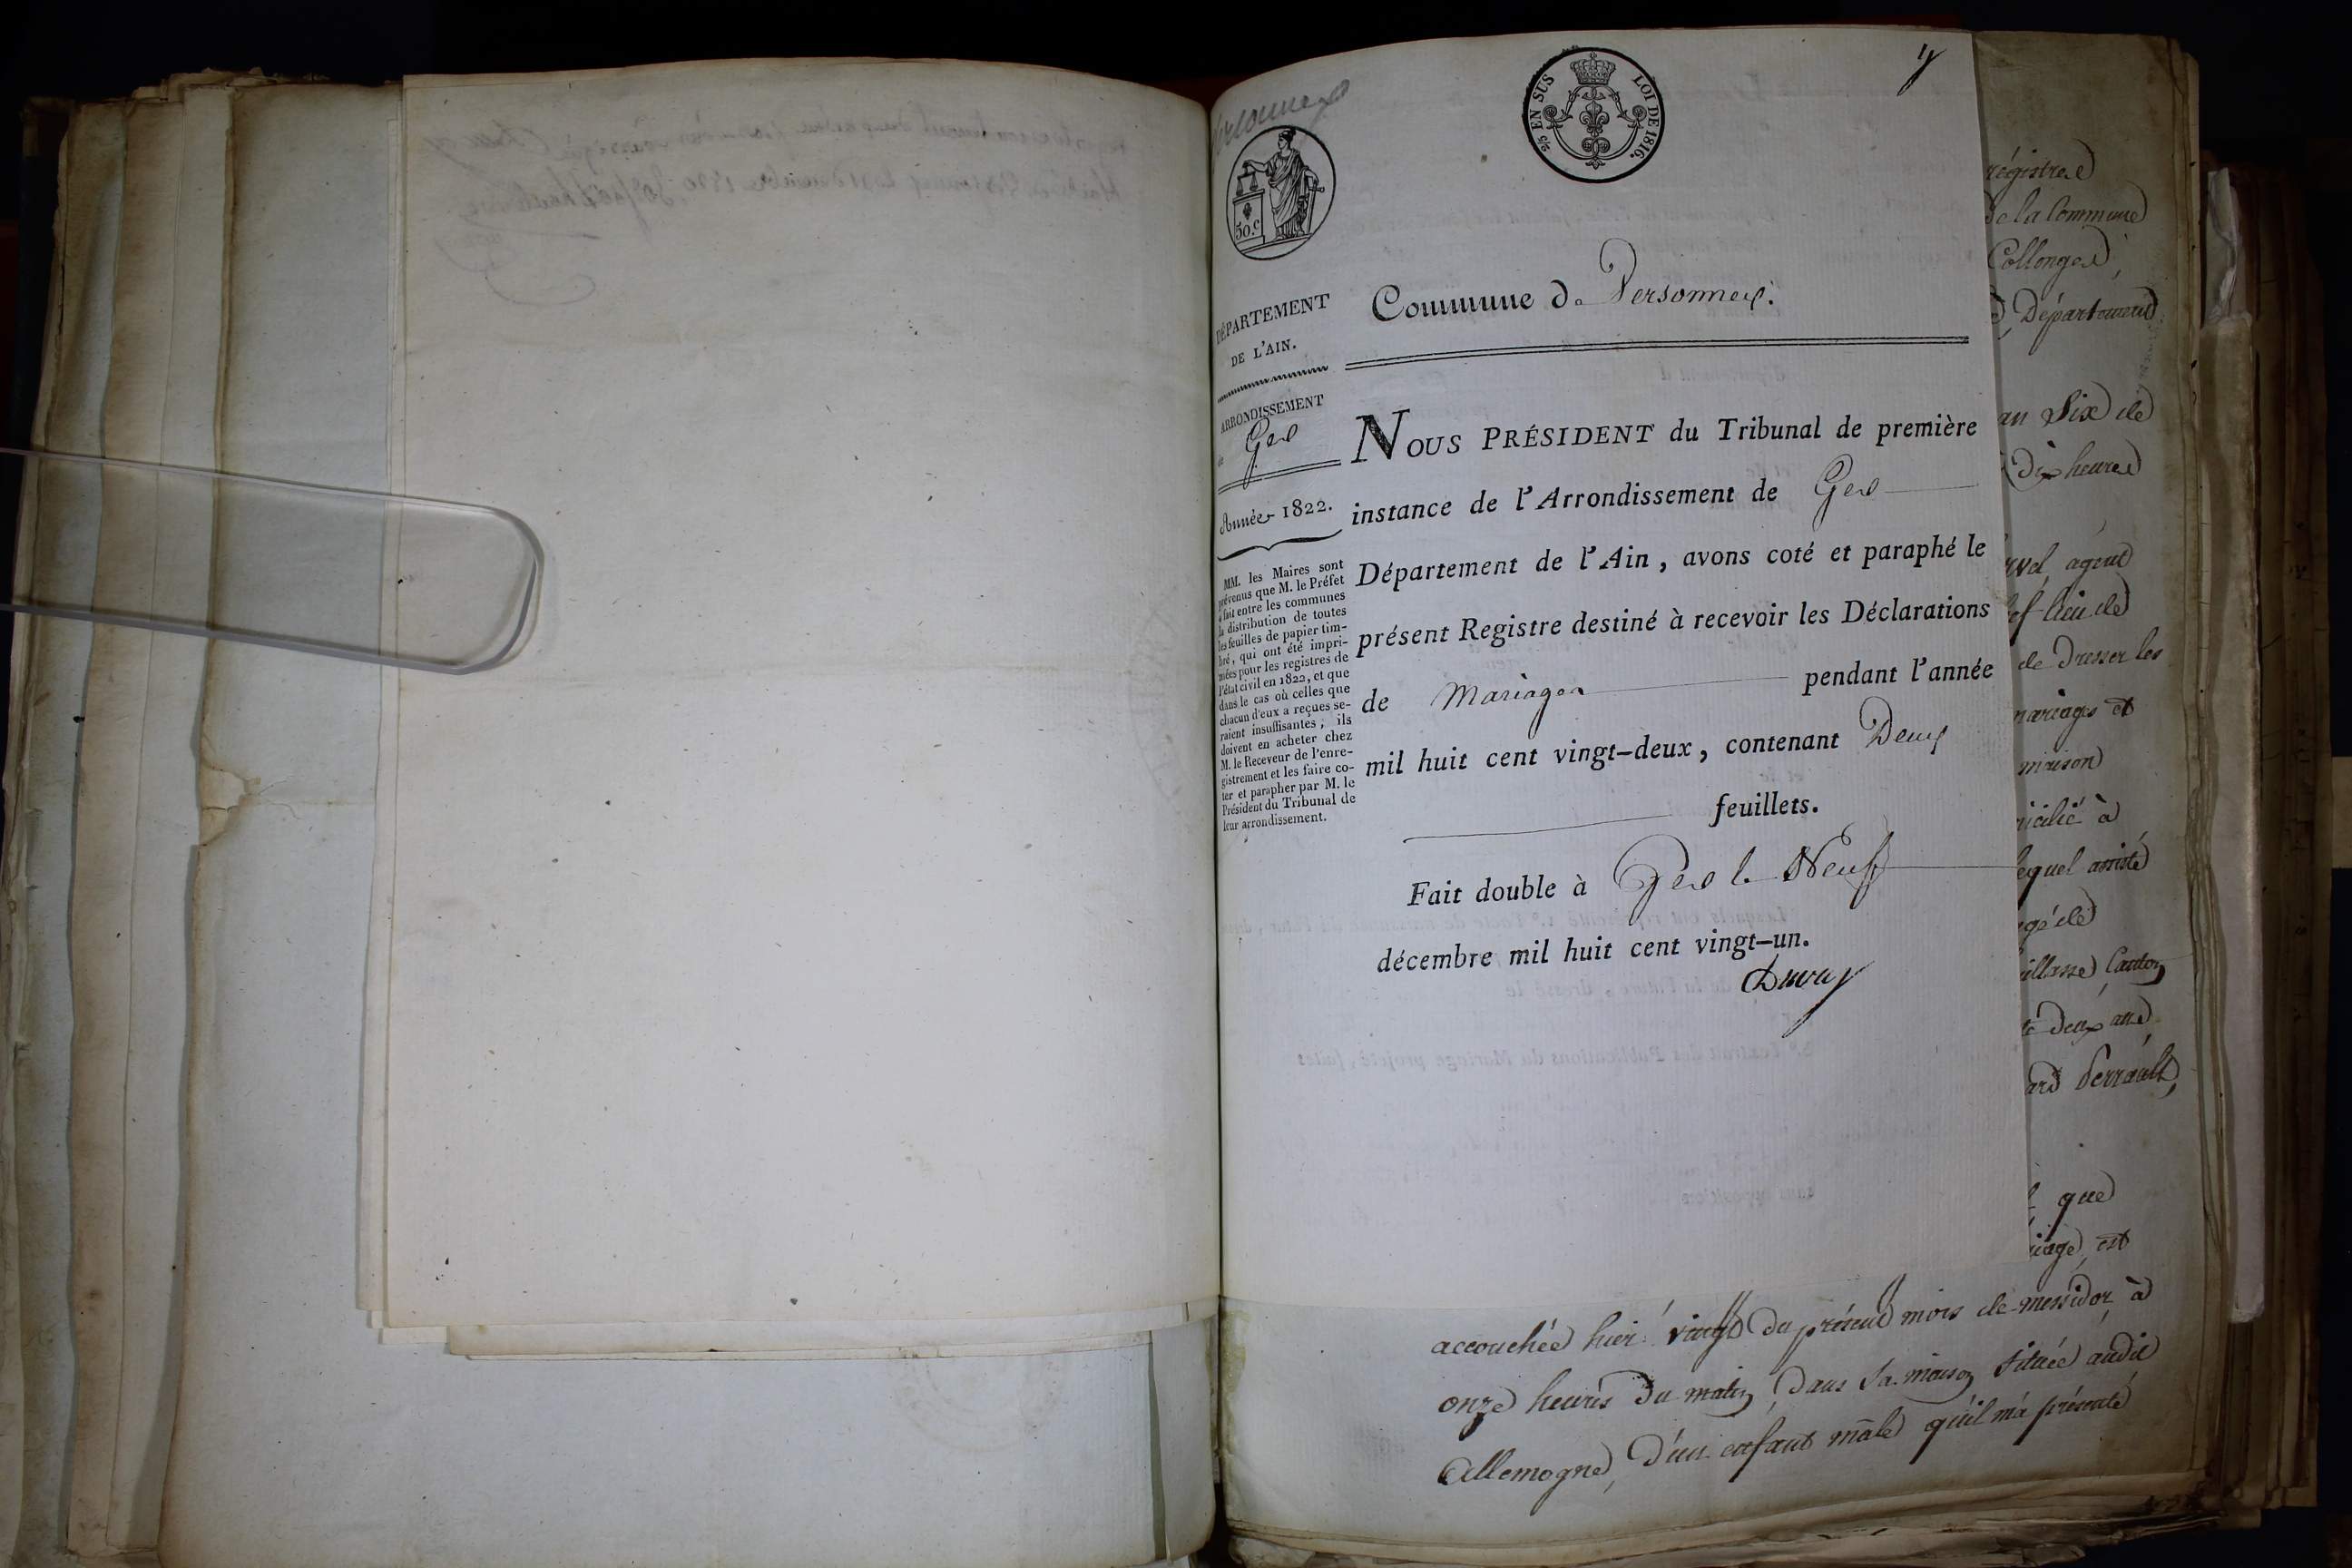 2/5 EN SUS LOI DE 1816.
50.c
DÉPARTEMENT
DE L'AIN.
ARRONDISSEMENT
de Gex
Année 1822.
MM. les Maires sont
prévenus que M. le Préfet
a fait entre les communes
la distribution de toutes
les feuilles de papier tim-
bré, qui ont été impri-
mées pour les registres de
l'état civil en 1822, et que
dans le cas où celles que
chacun d'eux a reçues se-
raient insuffisantes, ils
doivent en acheter chez
M. le Receveur de l'enre-
gistrement et les faire co-
ter et parapher par M. le
Président du Tribunal de
leur arrondissement.
Commune de Versonnex.
NOUS PRÉSIDENT du Tribunal de première
instance de l'Arrondissement de Gex
Département de l'Ain, avons coté et paraphé le
présent Registre destiné à recevoir les Déclarations
de Mariages pendant l'année
mil huit cent vingt-deux, contenant Deux
feuillets.
Fait double à Gex le Neuf
décembre mil huit cent vingt-un.
régistre
de la Commune
Collonges,
Département
an Six de
dix heures
agent
lieu de
de dresser les
mariages et
maison
à
lequel assisté
Canton
deux ans
Perrault,
que
est
accouchée hier vingt du présent mois de messidor à
onze heures du matin, dans sa maison située audit
Allemogne, d'un enfant mâle qu'il m'a présenté